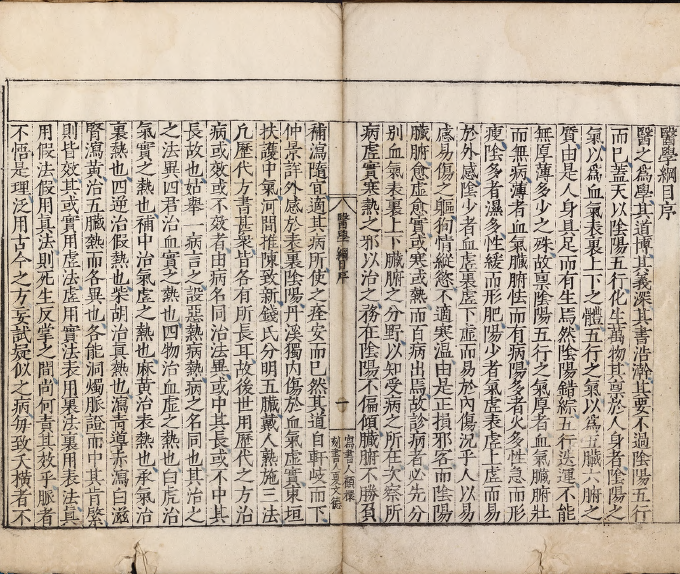 醫學綱目序
醫之爲學其道博其義深其書浩瀚其要不過陰陽五行
而已蓋天以陰陽五行化生萬物其稟於人身者陰陽之
氣以爲血氣表裏上下之體五行之氣以爲五臟六腑之
質由是人身具足而有生焉然陰陽錯綜五行迭運不能
無厚薄多少之殊故稟陰陽五行之氣厚者血氣臟腑壯
而無病薄者血氣臟腑怯而有病陽多者火多性急而形
瘦陰多者濕多性緩而形肥陽少者氣虛表虛上虛而易
於外感陰少者血虛裏虛下虛而易於內傷況乎人以易
感易傷之軀徇情縱慾不適寒温由是正損邪客而陰陽
臟腑愈虛愈實或寒或熱而百病出焉故診病者必先分
別血氣表裏上下臟腑之分野以知受病之所在次察所
病虛實寒熱之邪以治之務在陰陽不偏傾臟腑不勝負
醫學綱目序
一
寫書人顧檈
刻書人
補瀉隨宜適其病所使之痊安而已然其道自軒岐而下
仲景詳外感於表裏陰陽丹溪獨內傷於血氣虛實東垣
扶護中氣河間推陳致新錢氏分明五臟戴人熟施三法
凡歷代方書甚衆皆各有所長耳故後世用歷代之方治
病或效或不效者由病名同治法異或中其長或不中其
長故也姑舉一病言之設惡熱病熱病之名同也其治之
之法異四君治血實之熱也四物治血虛之熱也白虎治
氣實之熱也補中治氣虛之熱也麻黃治表熱也承氣治
裏熱也四逆治假熱也柴胡治真熱也瀉青導赤瀉白滋
腎瀉黃治五臟熱而各異也各能洞燭脈證而中其肯綮
則皆效其或實用虛法虛用實法表用裏法裏用表法真
用假法假用真法則死生反掌之間尚何責其效乎脈者
不悟是理泛用古今之方妄試疑似之病每致夭橫者不